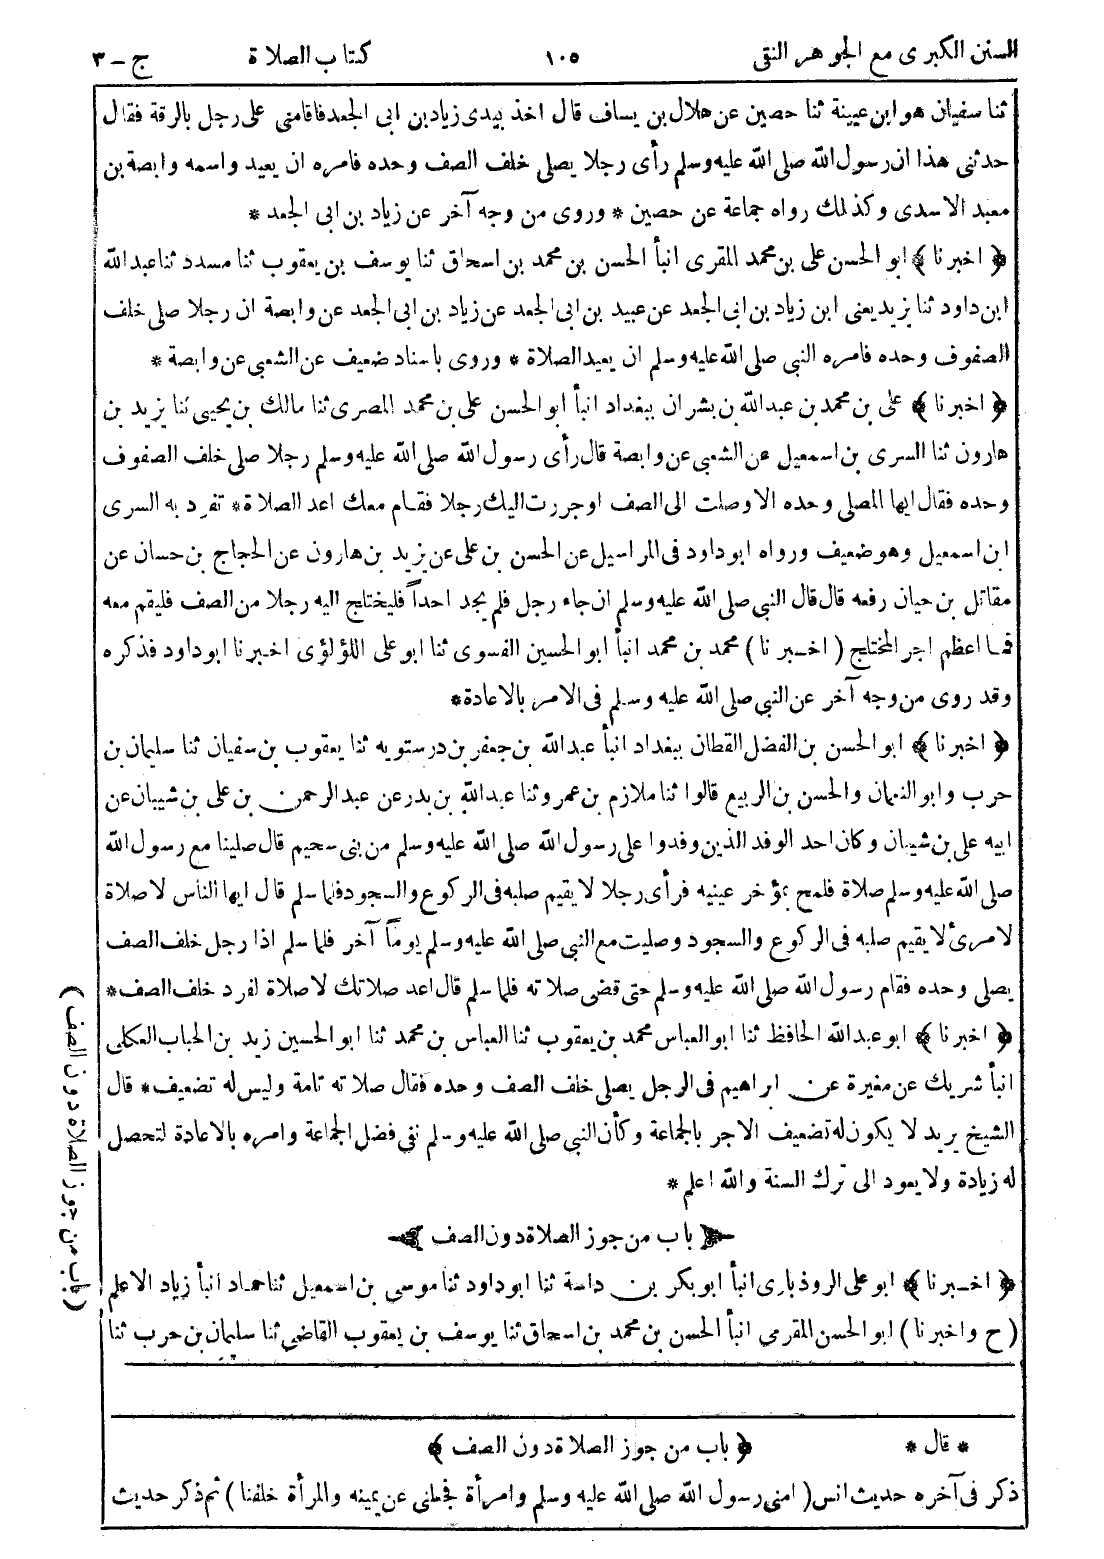 السنن الكبرى مع الجوهر النقى ١٠٥ كتاب الصلاة ج - ٣
ثنا سفيان هو ابن عيينة ثنا حصين عن هلال بن يساف قال اخذ بيدى زياد بن ابى الجعد فاقامنى على رجل بالرقة فقال
حدثنى هذا ان رسول الله صلى الله عليه وسلم رأى رجلا يصلى خلف الصف وحده فامره ان يعيد واسمه وابصة بن
معبد الاسدى وكذلك رواه جماعة عن حصين * وروى من وجه آخر عن زياد بن ابى الجعد *
﴿ اخبرنا ﴾ ابو الحسن على بن محمد المقرى انبأ الحسن بن محمد بن اسحاق ثنا يوسف بن يعقوب ثنا مسدد ثنا عبد الله
ابن داود ثنا يزيد يعنى ابن زياد بن ابى الجعد عن عبيد بن ابى الجعد عن زياد بن ابى الجعد عن وابصة ان رجلا صلى خلف
الصفوف وحده فامره النبى صلى الله عليه وسلم ان يعيد الصلاة * وروى باسناد ضعيف عن الشعبى عن وابصة *
﴿ اخبرنا ﴾ على بن محمد بن عبد الله بن بشران ببغداد انبأ ابو الحسن على بن محمد المصرى ثنا مالك بن يحيى ثنا يزيد بن
هارون ثنا السرى بن اسمعيل عن الشعبى عن وابصة قال رأى رسول الله صلى الله عليه وسلم رجلا صلى خلف الصفوف
وحده فقال ايها المصلى وحده الا وصلت الى الصف او جررت اليك رجلا فقام معك اعد الصلاة * تفرد به السرى
ابن اسمعيل وهو ضعيف ورواه ابو داود فى المراسيل عن الحسن بن على عن يزيد بن هارون عن الحجاج بن حسان عن
مقاتل بن حيان رفعه قال قال النبى صلى الله عليه وسلم ان جاء رجل فلم يجد احداً فليختلج اليه رجلا من الصف فليقم معه
فما اعظم اجر المختلج ( اخبرنا ) محمد بن محمد انبأ ابو الحسين الفسوى ثنا ابو على اللؤلؤى اخبرنا ابو داود فذكره
وقد روى من وجه آخر عن النبى صلى الله عليه وسلم فى الامر بالاعادة *
﴿ اخبرنا ﴾ ابو الحسن بن الفضل القطان ببغداد انبأ عبد الله بن جعفر بن درستويه ثنا يعقوب بن سفيان ثنا سليمان بن
حرب وابو النعمان والحسن بن الربيع قالوا ثنا ملازم بن عمرو ثنا عبد الله بن بدر عن عبد الرحمن بن على بن شيبان عن
ابيه على بن شيبان وكان احد الوفد الذين وفدوا على رسول الله صلى الله عليه وسلم من بنى سحيم قال صلينا مع رسول الله
صلى الله عليه وسلم صلاة فلمح بمؤخر عينيه فرأى رجلا لا يقيم صلبه فى الركوع والسجود فلما سلم قال ايها الناس لا صلاة
لامرئ لا يقيم صلبه فى الركوع والسجود وصليت مع النبى صلى الله عليه وسلم يوماً آخر فلما سلم اذا رجل خلف الصف
يصلى وحده فقام رسول الله صلى الله عليه وسلم حتى قضى صلاته فلما سلم قال اعد صلاتك لا صلاة لفرد خلف الصف *
﴿ اخبرنا ﴾ ابو عبد الله الحافظ ثنا ابو العباس محمد بن يعقوب ثنا العباس بن محمد ثنا ابو الحسين زيد بن الحباب العكلى
انبأ شريك عن مغيرة عن ابراهيم فى الرجل يصلى خلف الصف وحده فقال صلاته تامة وليس له تضعيف * قال
الشيخ يريد لا يكون له تضعيف الاجر بالجماعة وكأن النبى صلى الله عليه وسلم نفى فضل الجماعة وامره بالاعادة لتحصل
له زيادة ولا يعود الى ترك السنة والله اعلم *
باب من جوز الصلاة دون الصف
﴿ اخبرنا ﴾ ابو على الروذبارى انبأ ابو بكر بن داسة ثنا ابو داود ثنا موسى بن اسمعيل ثنا حماد انبأ زياد الاعلم
( ح واخبرنا ) ابو الحسن المقرى انبأ الحسن بن محمد بن اسحاق ثنا يوسف بن يعقوب القاضى ثنا سليمان بن حرب ثنا
( باب من جوز الصلاة دون الصف )
* قال * ﴿ باب من جوز الصلاة دون الصف ﴾
ذكر فى آخره حديث انس ( امنى رسول الله صلى الله عليه وسلم وامرأة فجعلنى عن يمينه والمرأة خلفنا ) ثم ذكر حديث